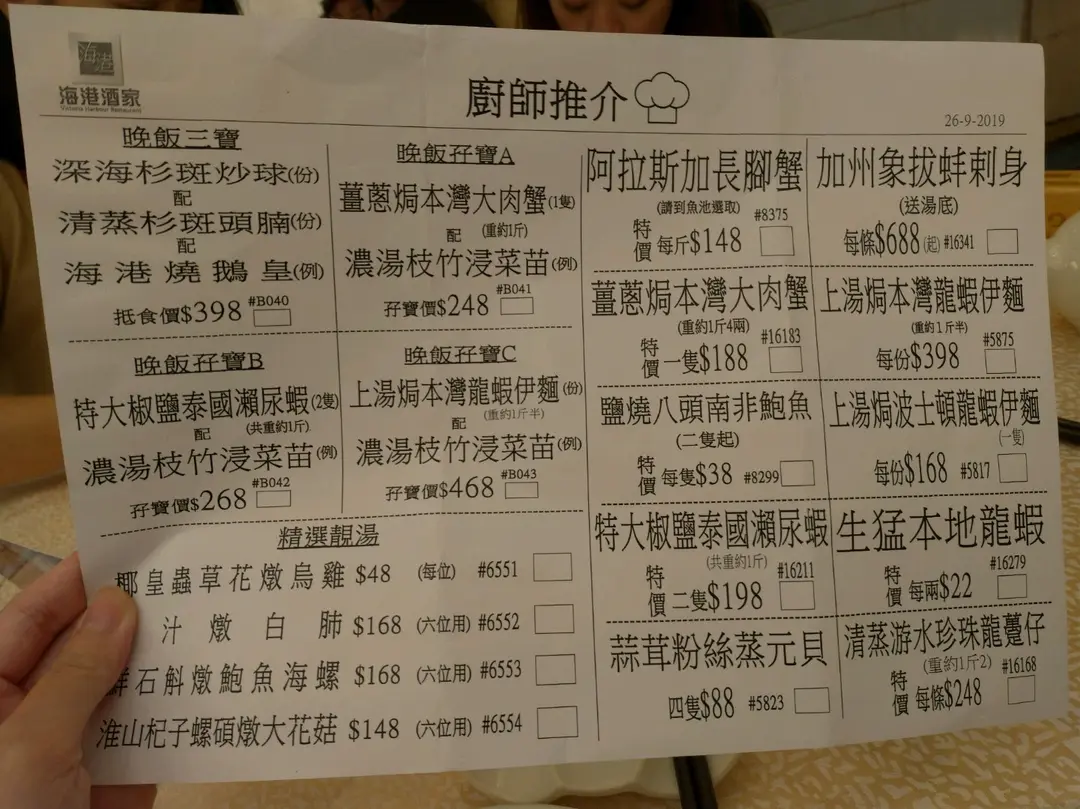 海港
海港酒家
Victoria Harbour Restaurant
廚師推介
26-9-2019
晚飯三寶
深海杉斑炒球(份)
配
清蒸杉斑頭腩(份)
配
海港燒鵝皇(例)
抵食價$398 #B040
晚飯孖寶A
薑蔥焗本灣大肉蟹(1隻)
配 (重約1斤)
濃湯枝竹浸菜苗(例)
孖寶價$248 #B041
晚飯孖寶B
特大椒鹽泰國瀨尿蝦(2隻)
配 (共重約1斤)
濃湯枝竹浸菜苗(例)
孖寶價$268 #B042
晚飯孖寶C
上湯焗本灣龍蝦伊麵(份)
配 (重約1斤半)
濃湯枝竹浸菜苗(例)
孖寶價$468 #B043
精選靚湯
椰皇蟲草花燉烏雞 $48 (每位) #6551
汁燉白肺 $168 (六位用) #6552
石斛燉鮑魚海螺 $168 (六位用) #6553
淮山杞子螺碩燉大花菇 $148 (六位用) #6554
阿拉斯加長腳蟹
(請到魚池選取)
特價 每斤$148 #8375
薑蔥焗本灣大肉蟹
(重約1斤4兩)
特價 一隻$188 #16183
鹽燒八頭南非鮑魚
(二隻起)
特價 每隻$38 #8299
特大椒鹽泰國瀨尿蝦
(共重約1斤)
特價 二隻$198 #16211
蒜茸粉絲蒸元貝
四隻$88 #5823
加州象拔蚌刺身
(送湯底)
每條$688(起) #16341
上湯焗本灣龍蝦伊麵
(重約1斤半)
每份$398 #5875
上湯焗波士頓龍蝦伊麵
(一隻)
每份$168 #5817
生猛本地龍蝦
特價 每兩$22 #16279
清蒸游水珍珠龍躉仔
(重約1斤2)
特價 每條$248 #16168